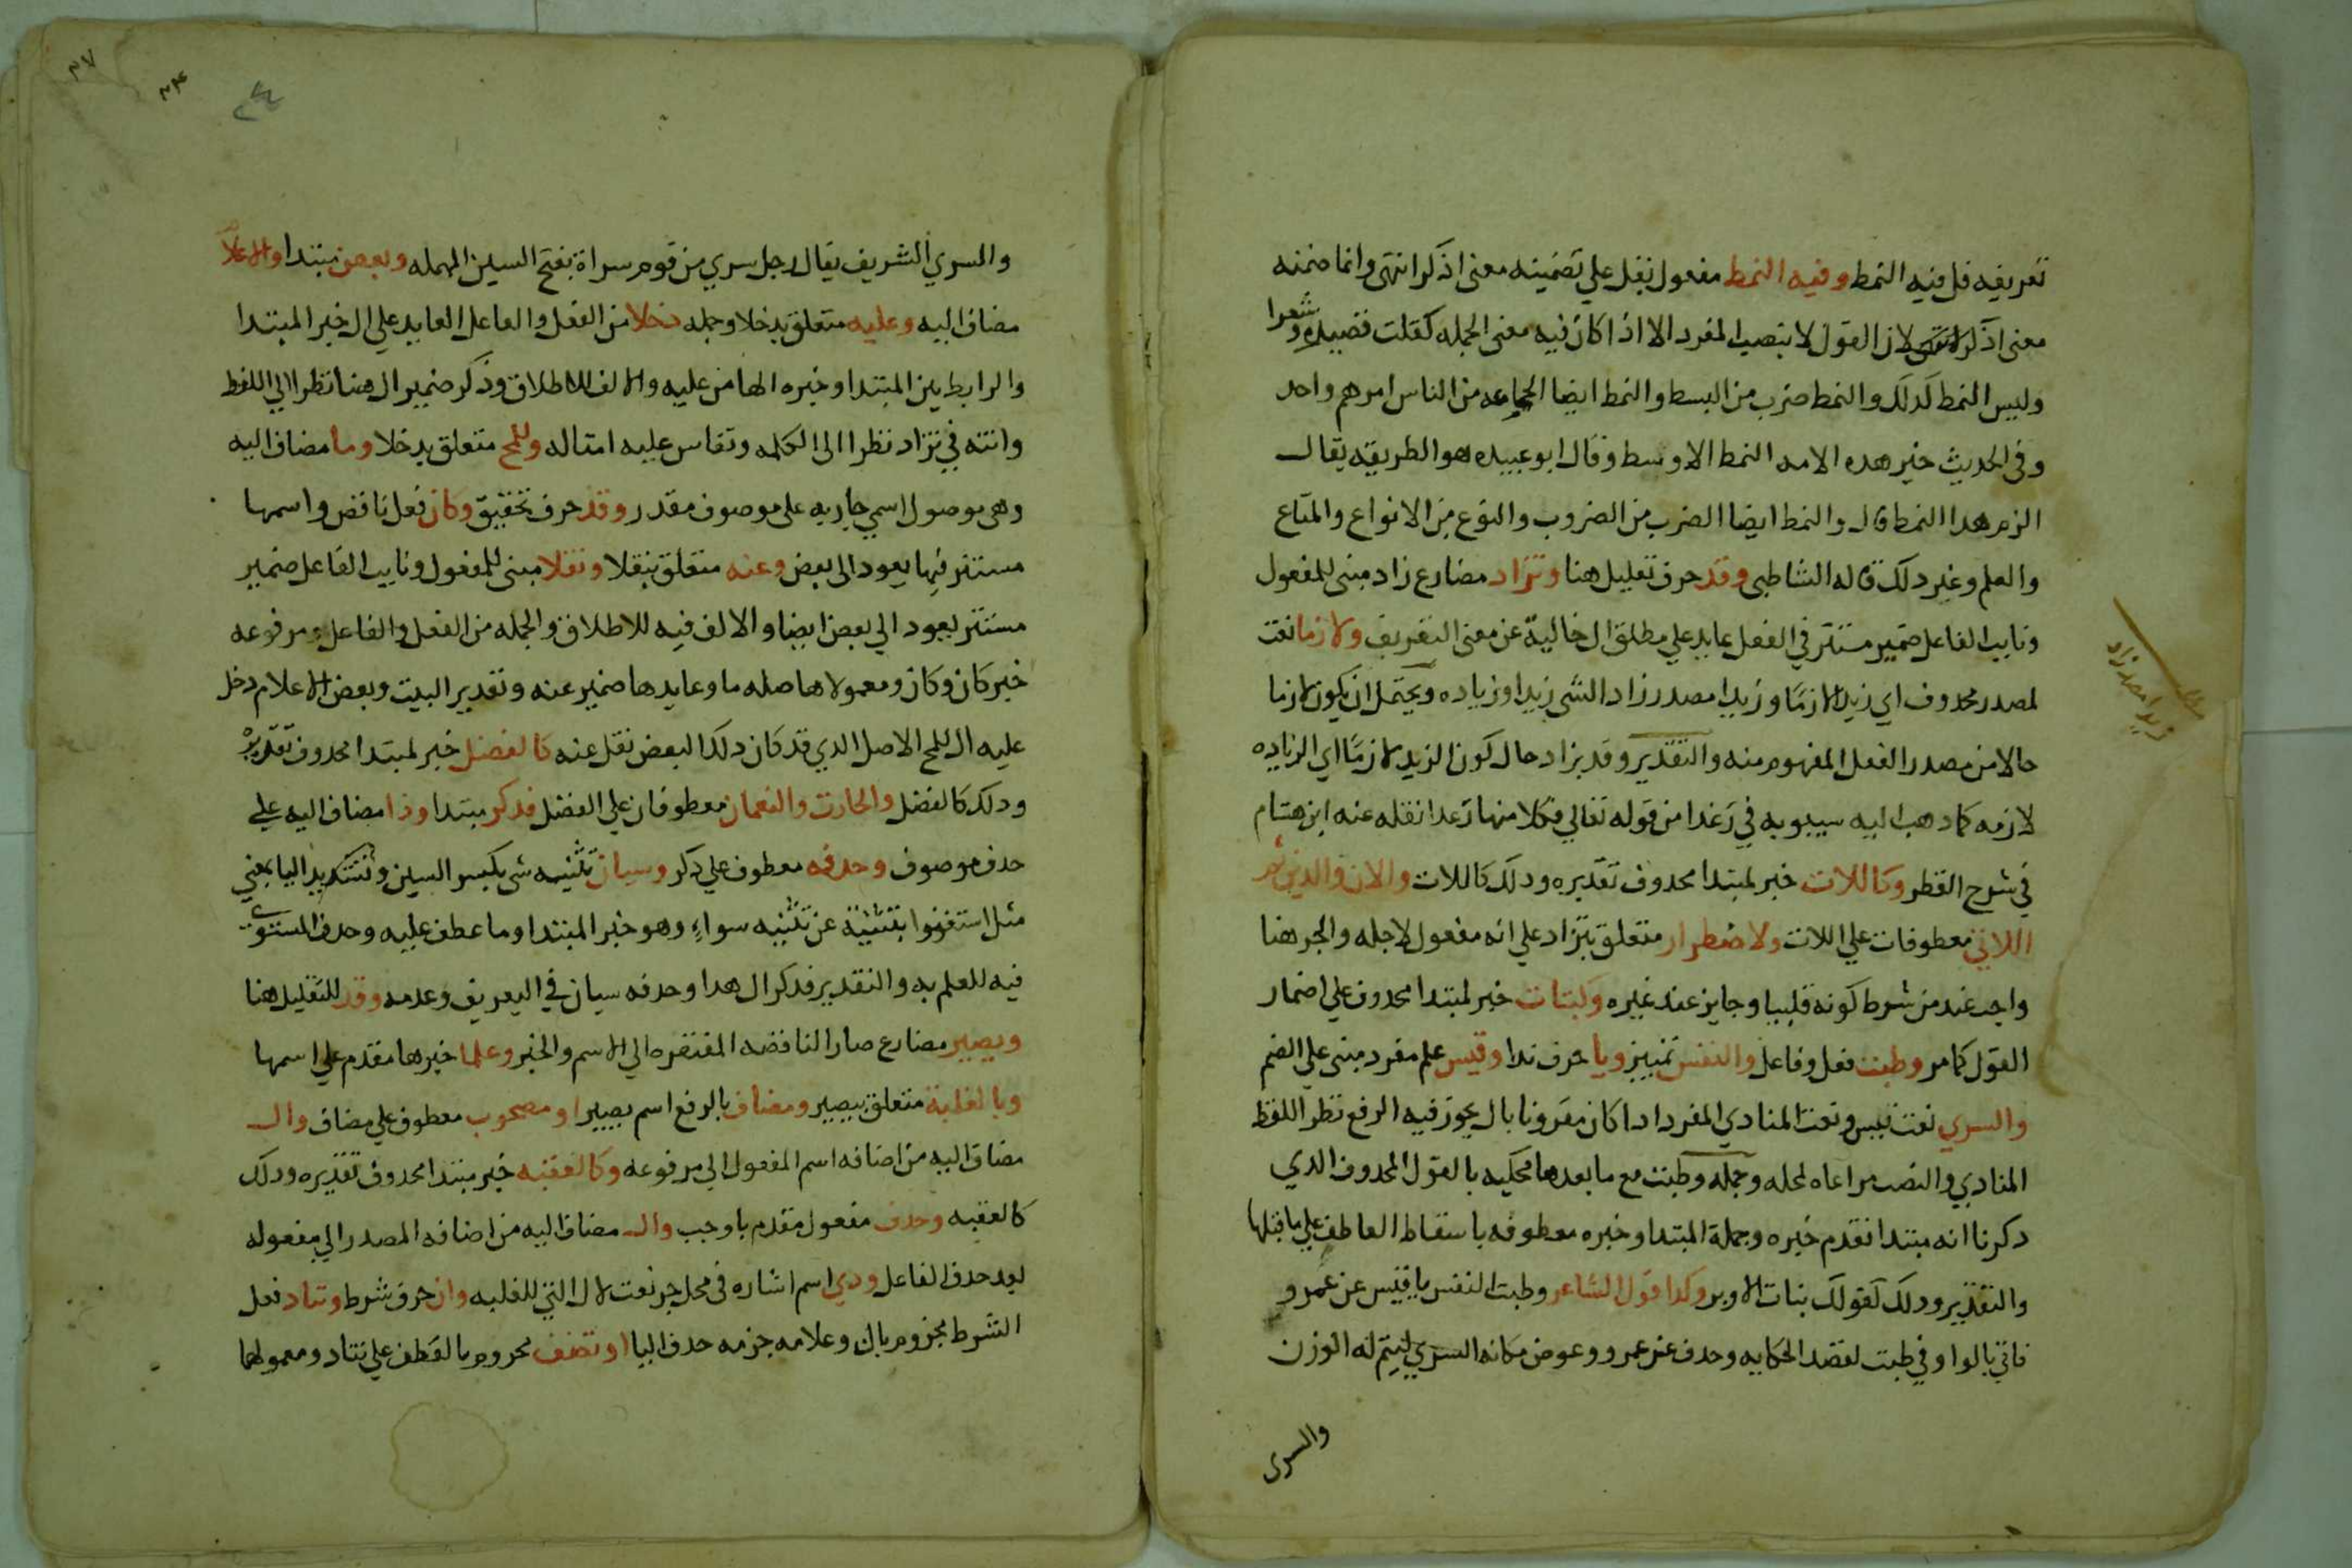 تعريفه قل فيه النمط وفيه النمط مفعول بقل علي تضمينه معنى اذكر انتهى وانما ضمنه
معنى اذكر لان القول لا ينصب المفرد الا اذا كان فيه معنى الجمله كقلت قصيده وشعرا
وليس النمط كذلك والنمط ضرب من البسط والنمط ايضا الجماعه من الناس امرهم واحد
وفى الحديث خير هده الامه النمط الاوسط وقال ابو عبيده هو الطريقه يقال
الزم هدا النمط قال والنمط ايضا الضرب من الضروب والنوع من الانواع والمتاع
والعلم وغير دلك قاله الشاطبى وقد حرف تعليل هنا وتزاد مضارع زاد مبنى للمفعول
ونايب الفاعل ضمير مستتر في الفعل عايد علي مطلق ال خالية عن معنى التعريف ولازما نعت
لمصدر محدوف اي زيدا لازمًا وزيدا مصدر زاد الشى زيدا وزياده ويحتمل ان يكون لازما
حالا من مصدر الفعل المفهوم منه والتقدير وقد يزاد حال كون الزيد لازمًا اي الزياده
لازمه كما دهب اليه سيبويه في رغدا من قوله تعالي فكلا منها رغدا نقله عنه ابن هشام
في شرح القطر وكاللات خبر لمبتدا محدوف تقديره ودلك كاللات والان والدين ثم
اللاتي معطوفات علي اللات ولاضطرار متعلق بتزاد علي انه مفعول لاجله والجر هنا
واجب عند من شرط كونه قلبيا وجايز عند غيره وكبنات خبر لمبتدا محدوف علي اضمار
القول كما مر وطبت فعل وفاعل والنفس تمييز ويا حرف ندا وقيس علم مفرد مبنى علي الضم
والسري نعت قيس ونعت المنادي المفرد ادا كان مقرونا بال يجوز فيه الرفع نظرا للفظ
المنادي والنصب مراعاه لمحله وجمله وطبت مع ما بعدها محكيه بالقول المحدوف الدي
دكرنا انه مبتدا تقدم خبره وجملة المبتدا وخبره معطوفه باسقاط العاطف علي ما قبلها
والتقدير ودلك كقولك بنات الاوبر وكدا قول الشاعر وطبت النفس يا قيس عن عمرو
فاتي بالواو في طبت لقصد الحكايه وحدف عن عمرو وعوض مكانه السري ليتم له الوزن
والسرى
زيدا مصدر زاد
والسري الشريف يقال رجل سري من قوم سراة بفتح السين المهمله وبعض مبتدا والاعلام
مضاف اليه وعليه متعلق بدخلا وجمله دخلا من الفعل والفاعل العايد علي ال خبر المبتدا
والرابط بين المبتدا وخبره الها من عليه والالف للاطلاق ودكر ضمير ال هنا نظرا الي اللفظ
وانثه في تزاد نظرا الى الكلمه وتقاس عليه امثاله وللمح متعلق بدخلا وما مضاف اليه
وهى موصول اسمي جاريه على موصوف مقدر وقد حرف تحقيق وكان فعل ناقص واسمها
مستتر فيها يعود الى بعض وعنه متعلق بنقلا ونقلا مبنى للمفعول ونايب الفاعل ضمير
مستتر يعود الي بعض ايضا والالف فيه للاطلاق والجمله من الفعل والفاعل ومرفوعه
خبر كان وكان ومعمولاها صله ما وعايدها ضمير عنه وتقدير البيت وبعض الاعلام دخل
عليه ال للمح الاصل الدي قد كان دلك البعض نقل عنه كالفضل خبر لمبتدا محدوف تقديره
ودلك كالفضل والحارث والنعمان معطوفان علي الفضل فدكر مبتدا وذا مضاف اليه علي
حدف موصوف وحدفه معطوف علي دكر وسيان تثنيه سى بكسر السين وتشديد اليا بمعني
مثل استغنوا بتثنيته عن تثنيه سواء وهو خبر المبتدا وما عطف عليه وحدف المستوى
فيه للعلم به والتقدير فدكر ال هدا وحدفه سيان في التعريف وعدمه وقد للتقليل هنا
ويصير مضارع صار الناقصه المفتقره الي الاسم والخبر وعلما خبرها مقدم علي اسمها
وبالغلبة متعلق بيصير ومضاف بالرفع اسم يصير او مصحوب معطوف علي مضاف وال
مضاف اليه من اضافه اسم المفعول الي مرفوعه وكالعقبه خبر مبتدا محدوف تقديره ودلك
كالعقبه وحدف مفعول مقدم باوجب وال مضاف اليه من اضافه المصدر الي مفعوله
بعد حدف الفاعل ودي اسم اشاره فى محل جر نعت لال التي للغلبه وان حرف شرط وتناد فعل
الشرط مجزوم بان وعلامه جزمه حدف اليا او تضف مجروم بالعطف علي تناد ومعمولهما